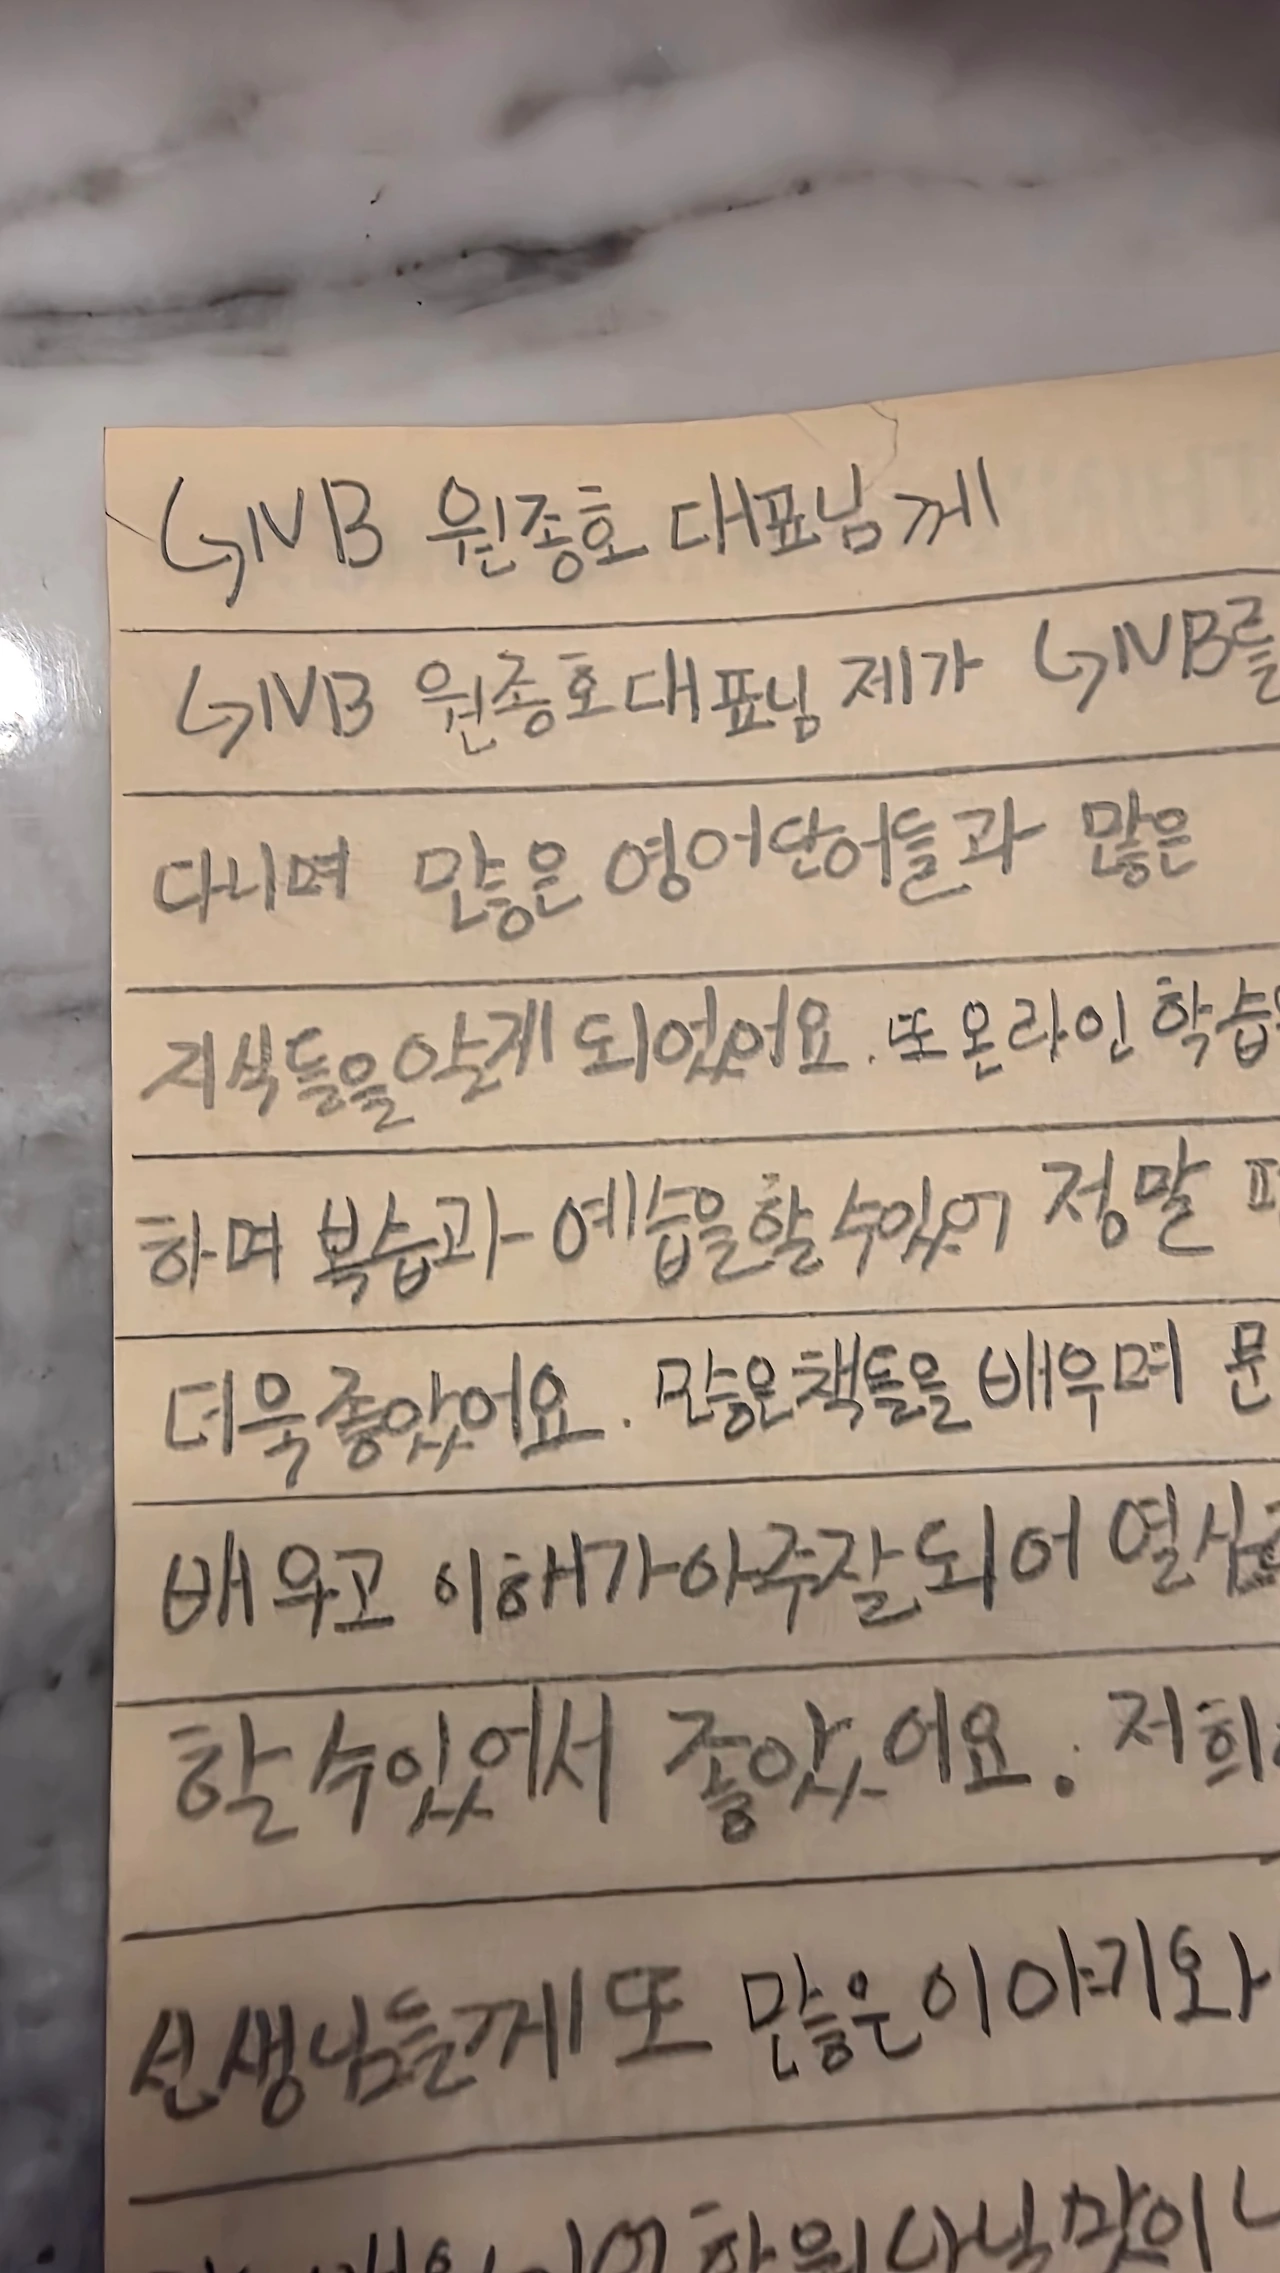 GNB 원종호 대표님께
GNB 원종호대표님 제가 GNB를
다니며 많은 영어단어들과 많은
지식들을알게 되었어요. 또 온라인 학습
하며 복습과 예습을할수있어 정말
더욱좋았어요. 많은책들을 배우며 문
배우고 이해가아주잘되어 열심
할수있어서 좋았어요. 저희
선생님들께 또 많은이야기와